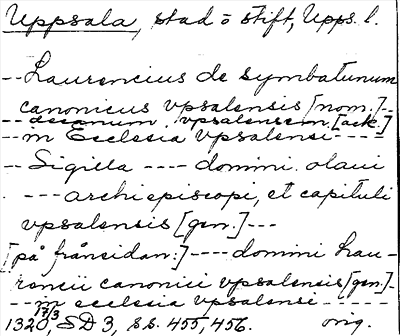 Uppsala, stad o stift, Upps. l.
-- Laurencius de symbatunum
canonicus vpsalensis [nom.] --
-- decanum vpsalensem [ack.]
-- in Ecclesia vpsalensi ----
-- Sigilla ---- domini olaui
--- archiepiscopi, et capituli
vpsalensis [gen.] ---
[på frånsidan:] ---- domini lau-
rencii canonici vpsalensis [gen.] -
-- in ecclesia vpsalensi -----
1320 17/3, SD 3, ss. 455, 456. orig.